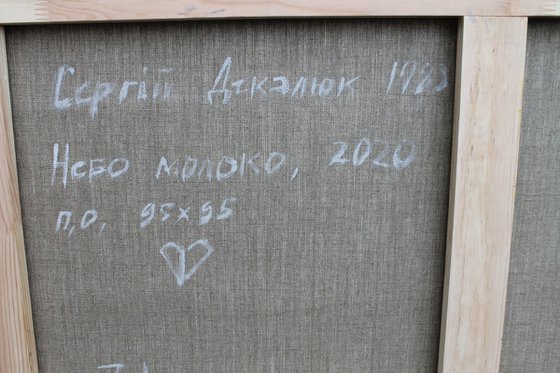 Сергій Декалюк
Небо молоко, 2020
п,о, 95х95